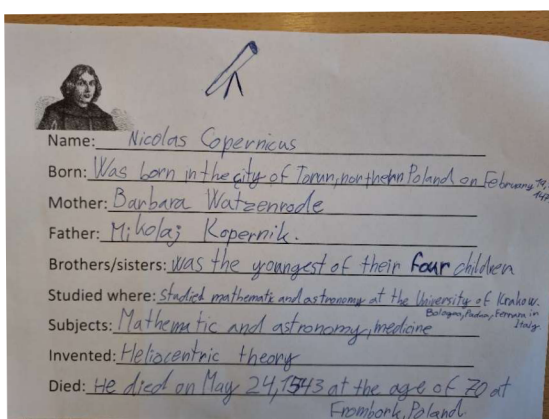 Name: Nicolas Copernicus
Born: Was born in the city of Torun, northern Poland on February 19,
147
Mother: Barbara Watzenrode
Father: Mikolaj Kopernik.
Brothers/sisters: was the youngest of their four children
Studied where: Studied mathematic and astronomy at the University of Krakow.
Bologna, Padua, Ferrara in
Italy
Subjects: Mathematic and astronomy, medicine
Invented: Heliocentric theory
Died: He died on May 24, 1543 at the age of 70 at
Frombork, Poland